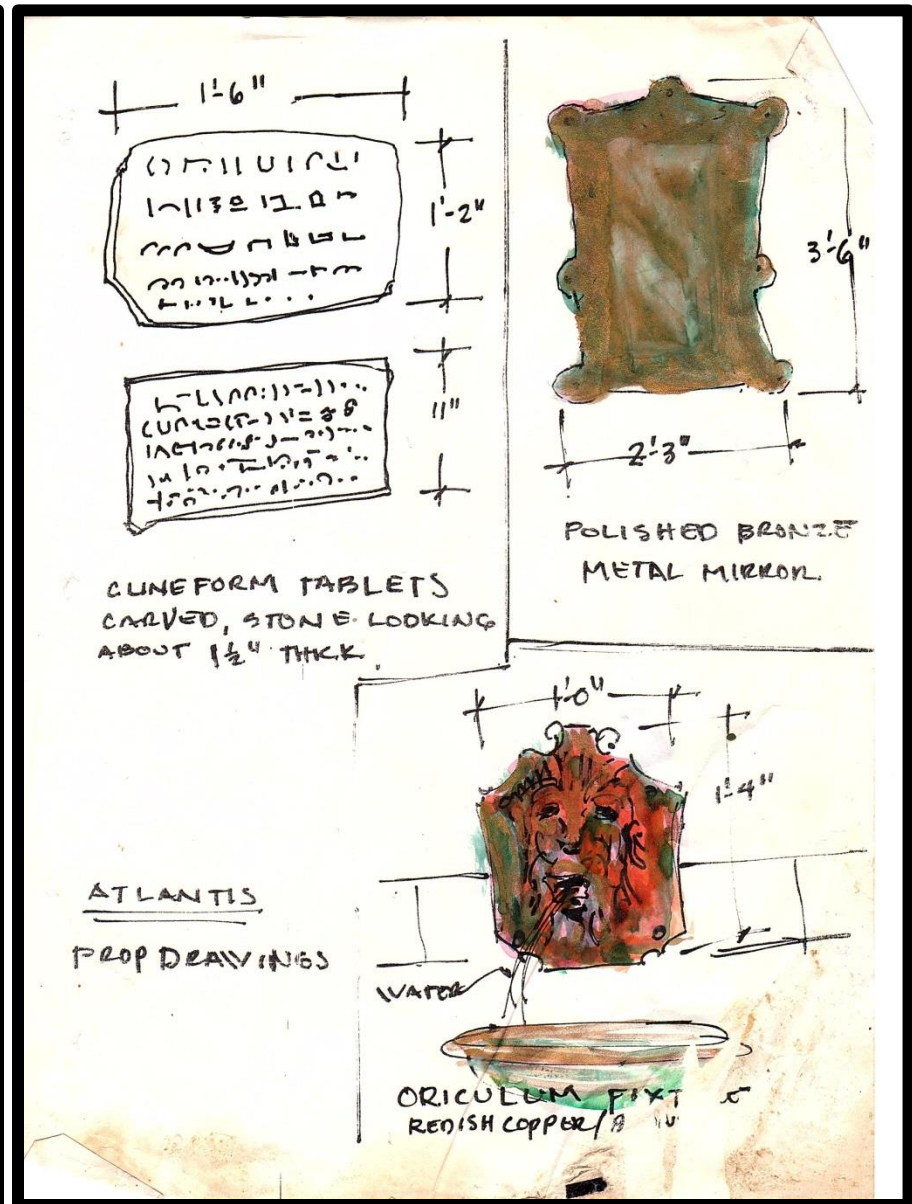 1'-6"
1'-2"
11"
CUNEFORM TABLETS
CARVED, STONE LOOKING
ABOUT 1½" THICK
3'-6"
2'-3"
POLISHED BRONZE
METAL MIRROR.
ATLANTIS
PROP DRAWINGS
1'-0"
1'-4"
WATER
ORICULUM
REDISH COPPER/